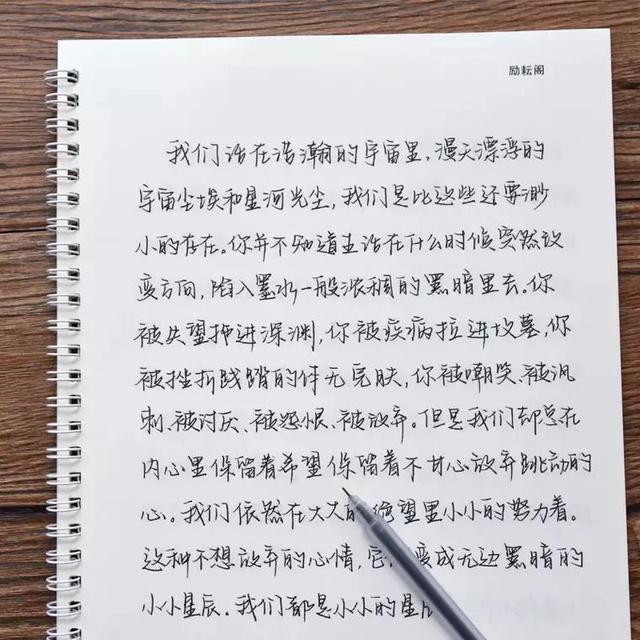 励耘阁
我们活在浩瀚的宇宙里,漫天漂浮的
宇宙尘埃和星河光尘,我们是比这些还要渺
小的存在。你并不知道生活在什么时候突然改
变方向,陷入墨水一般浓稠的黑暗里去。你
被失望拖进深渊,你被疾病拉进坟墓,你
被挫折践踏的体无完肤,你被嘲笑、被讽
刺、被讨厌、被怨恨、被放弃。但是我们却总在
内心里保留着希望保留着不甘心放弃跳动的
心。我们依然在大大的绝望里小小的努力着。
这种不想放弃的心情,它 变成无边黑暗的
小小星辰。我们都是小小的星